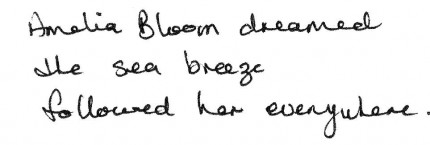 Amelia Bloom dreamed
the sea breeze
followed her everywhere.